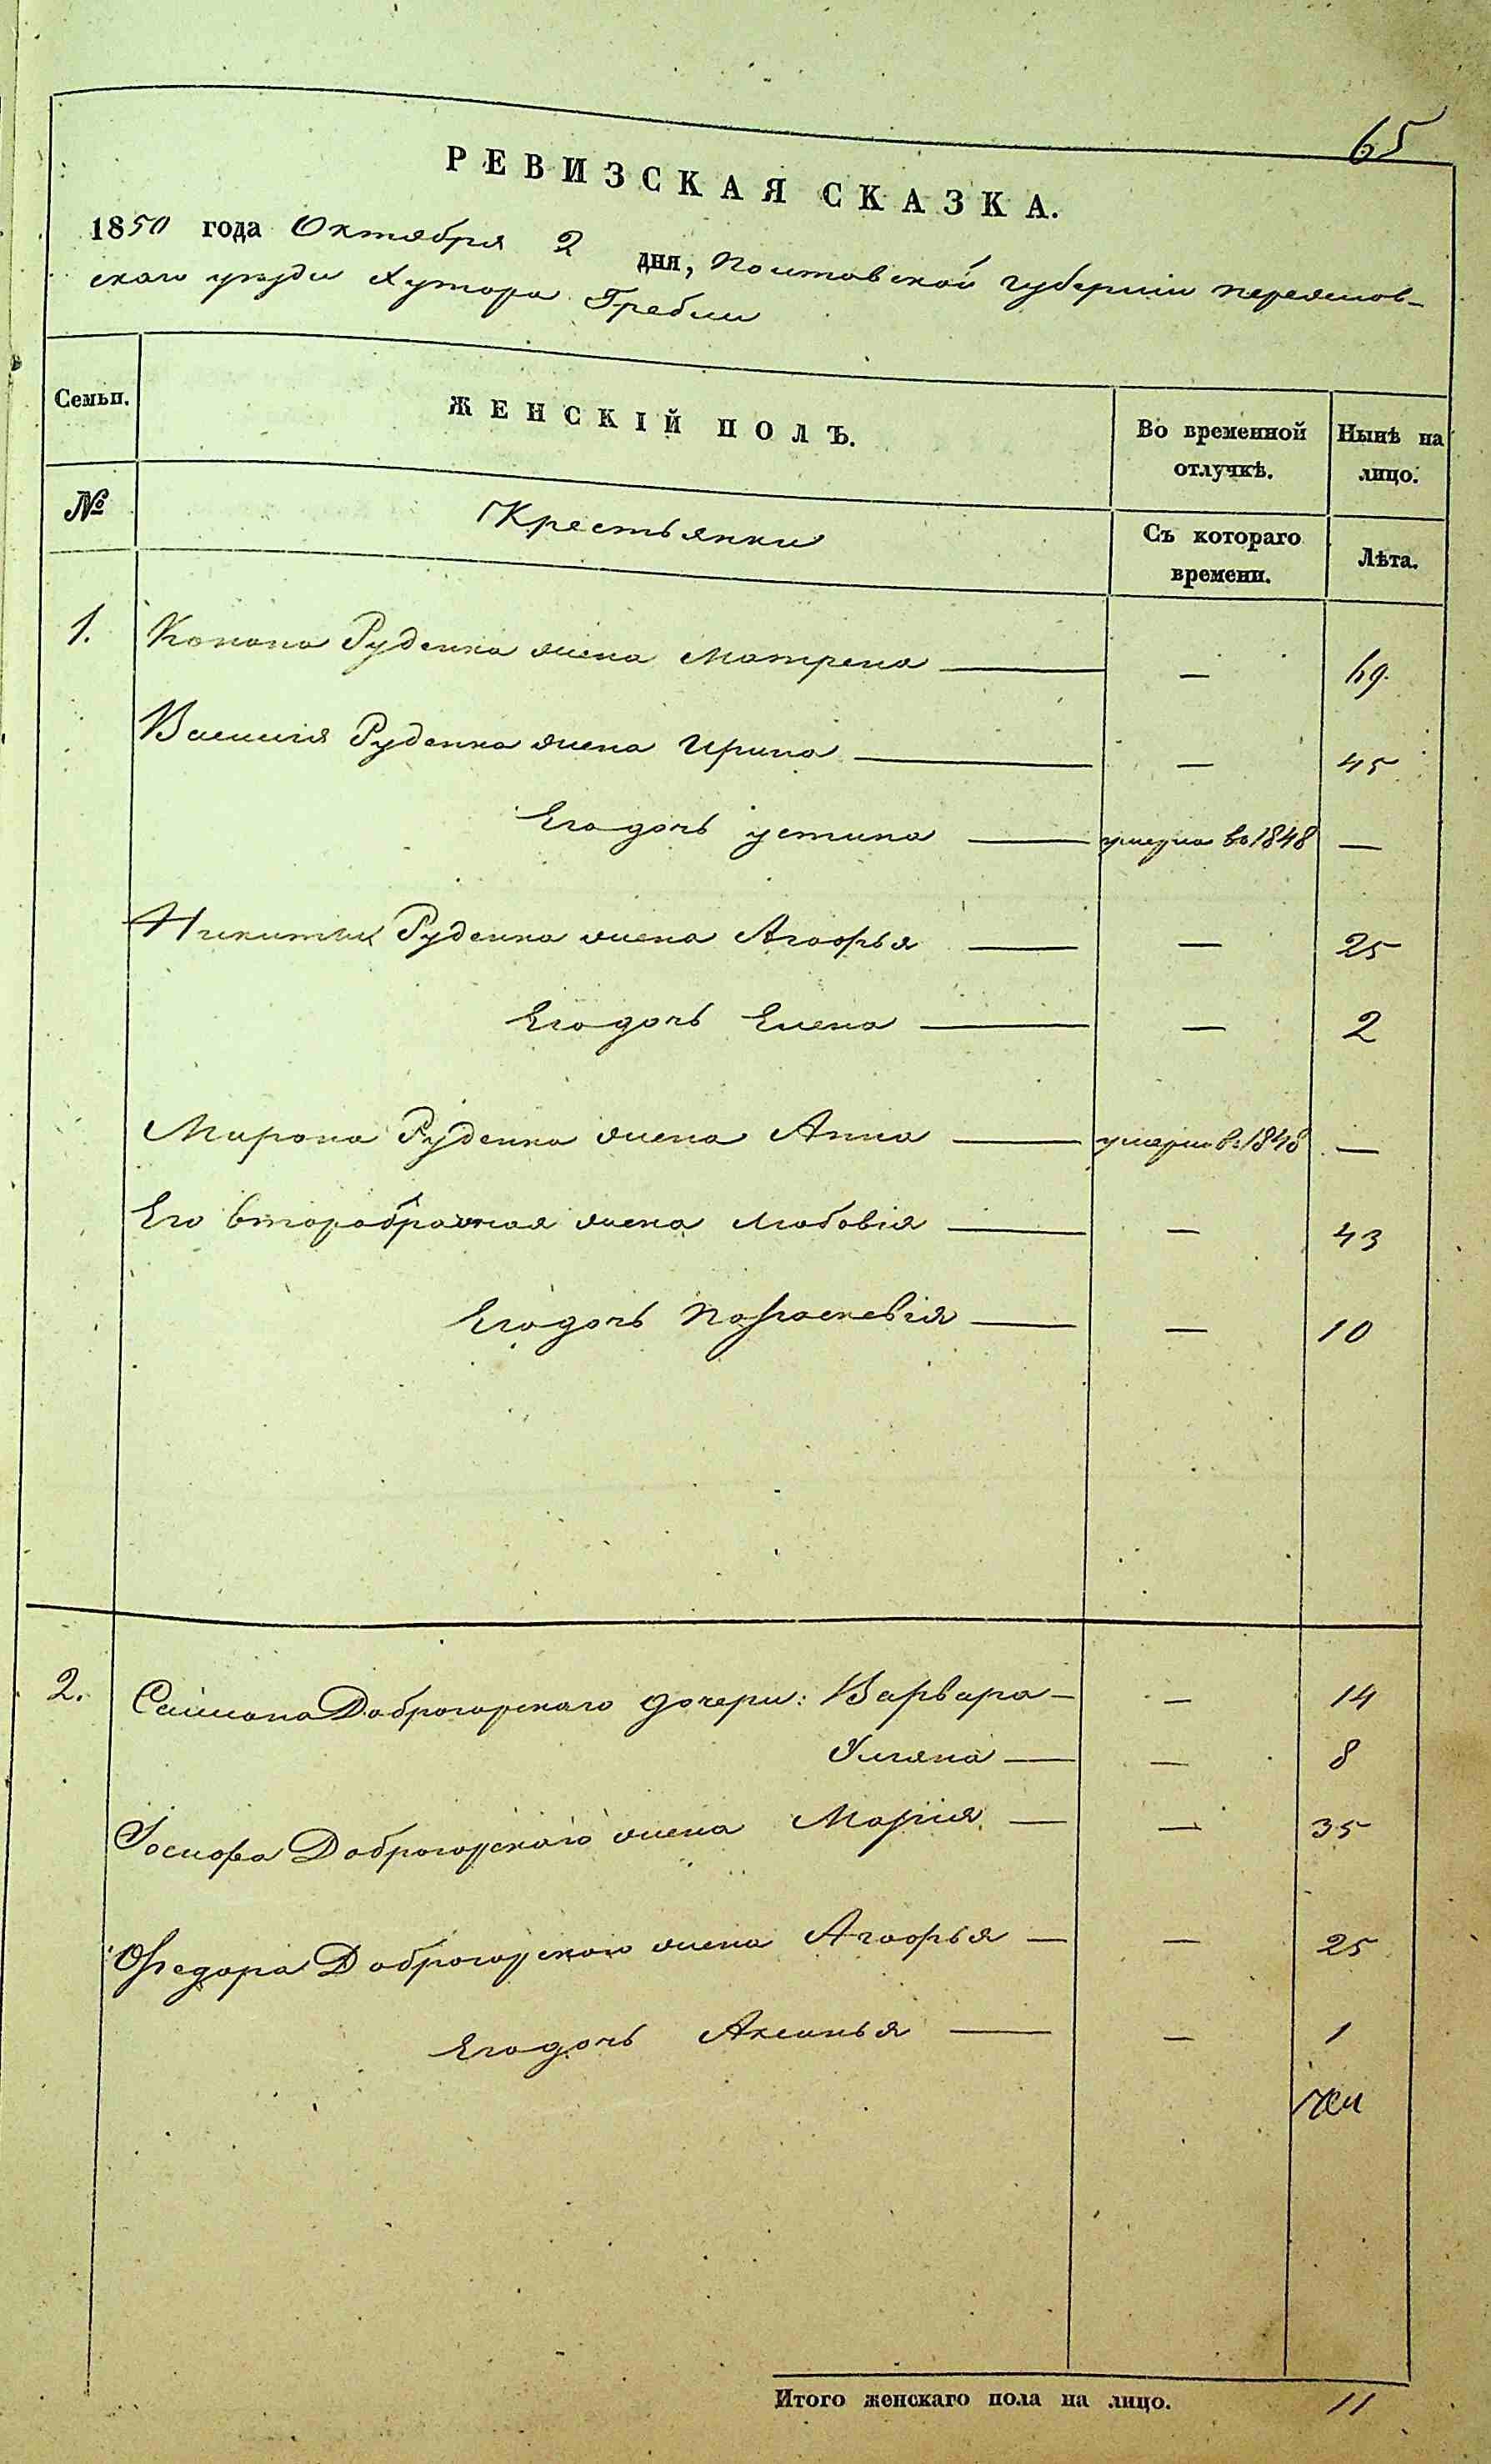 65
РЕВИЗСКАЯ СКАЗКА.
1850 года Октября 2 дня, Полтавской губерніи Переяслов-
скаго уезда Хутора Гребли
Семьи. ЖЕНСКІЙ ПОЛЪ. Во временной отлучкѣ. Нынѣ на лицо.
№ Крестьянки Съ котораго времени. Лѣта.
1. Конона Руденка жена Матрена — — 69.
Василія Руденка жена Ирина — — 45
Его дочь Устина — умерла в 1848 —
Никиты Руденка жена Агафья — — 25
Его дочь Елена — — 2
Мирона Руденка жена Анна — умерла в 1848 —
Его вторабрачная жена Любовія — — 43
Его дочь Параскевія — — 10
2. Самсона Доброгорскаго дочери: Варвара — — 14
Уляна — — 8
Іосифа Доброгорскаго жена Марія — — 35
Федора Доброгорскаго жена Агафья — — 25
Его дочь Аксинья — — 1
Итого женскаго пола на лицо. 11